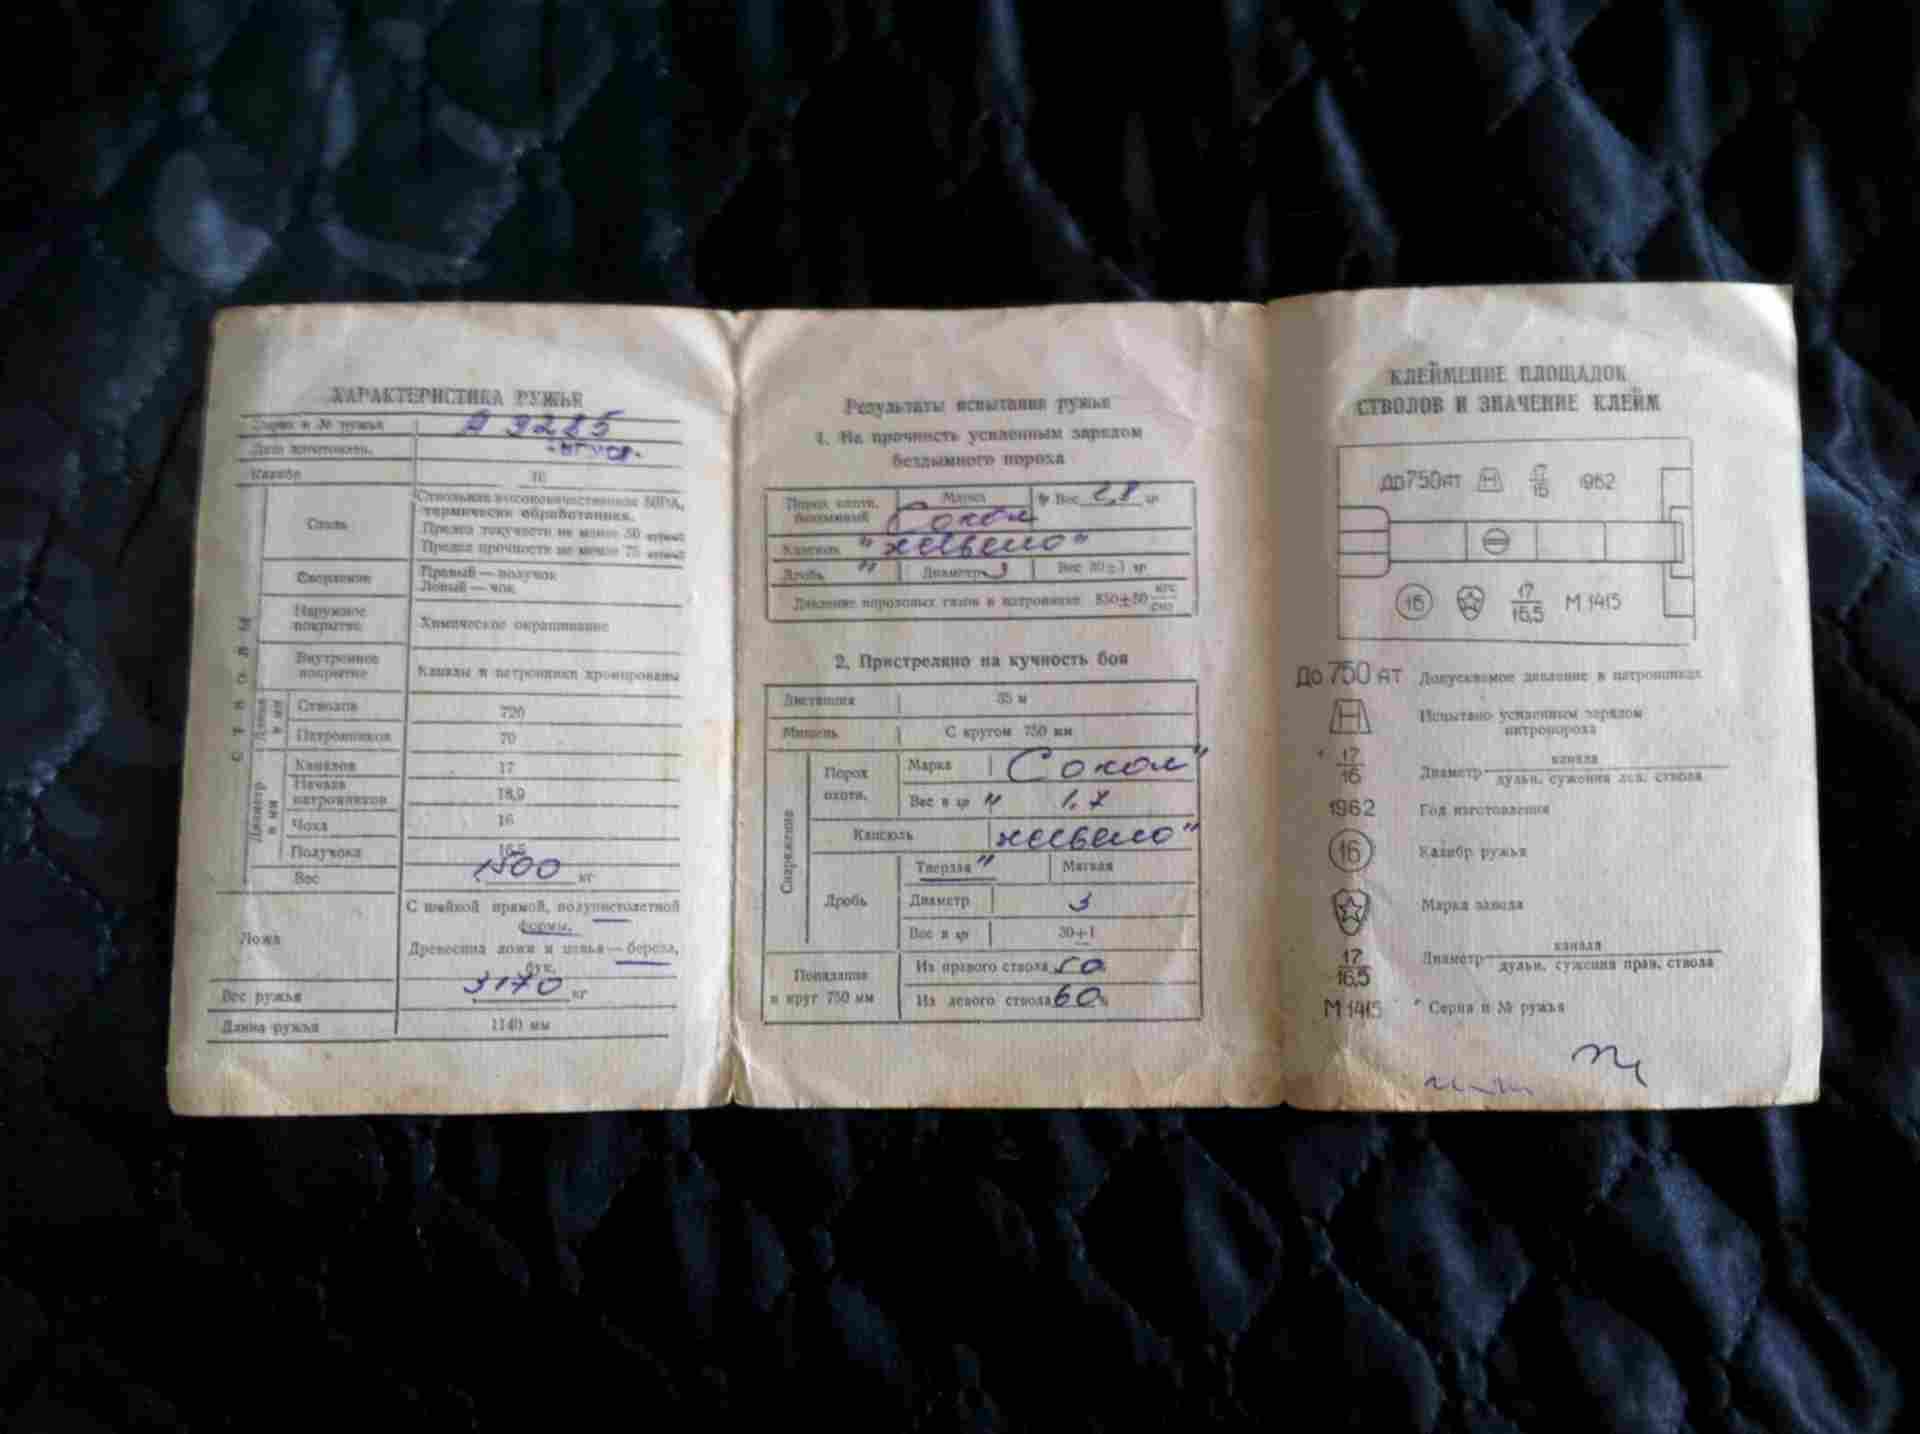 ХАРАКТЕРИСТИКА РУЖЬЯ
Серия и № ружья А 9225
Дата изготовлен.
Калибр 16
СТВОЛЫ
Сталь
Ствольная высококачественная 50РА,
термически обработанная.
Предел текучести не менее 50
Предел прочности не менее 75
Сверление
Правый — получок
Левый — чок
Наружное покрытие
Химическое окрашивание
Внутреннее покрытие
Каналы и патронники хромированы
Длина в мм
Стволов 720
Патронников 70
Диаметр в мм
Каналов 17
Начала патронников 18,9
Чока 16
Получока 16,5
Вес 1500 кг
Ложа
С шейкой прямой, полупистолетной
формы.
Древесина ложи и цевья — береза,
бук.
Вес ружья 3170 кг
Длина ружья 1140 мм
Результаты испытания ружья
1. На прочность усиленным зарядом
бездымного пороха
Порох охотн. бездымный
Марка Сокол
Вес 2,8 гр
Капсюль "жевело"
Дробь " Диаметр 3 Вес 30±1 гр
Давление пороховых газов в патроннике 850±50 кгс/см2
2. Пристреляно на кучность боя
Дистанция 35 м
Мишень С кругом 750 мм
Снаряжение
Порох охотн.
Марка Сокол"
Вес в гр " 1,7
Капсюль жевело"
Дробь
Твердая" Мягкая
Диаметр 3
Вес в гр 30±1
Попадание в круг 750 мм
Из правого ствола 50
Из левого ствола 60%
КЛЕЙМЕНИЕ ПЛОЩАДОК
СТВОЛОВ И ЗНАЧЕНИЕ КЛЕЙМ
ДО 750 АТ Н 17/16 1962
16 17/16,5 М 1415
До 750 АТ Допускаемое давление в патронниках
Н Испытано усиленным зарядом
нитропороха
17/16 Диаметр канала / дульн. сужения лев. ствола
1962 Год изготовления
16 Калибр ружья
Марка завода
17/16,5 Диаметр канала / дульн. сужения прав. ствола
М 1415 Серия и № ружья